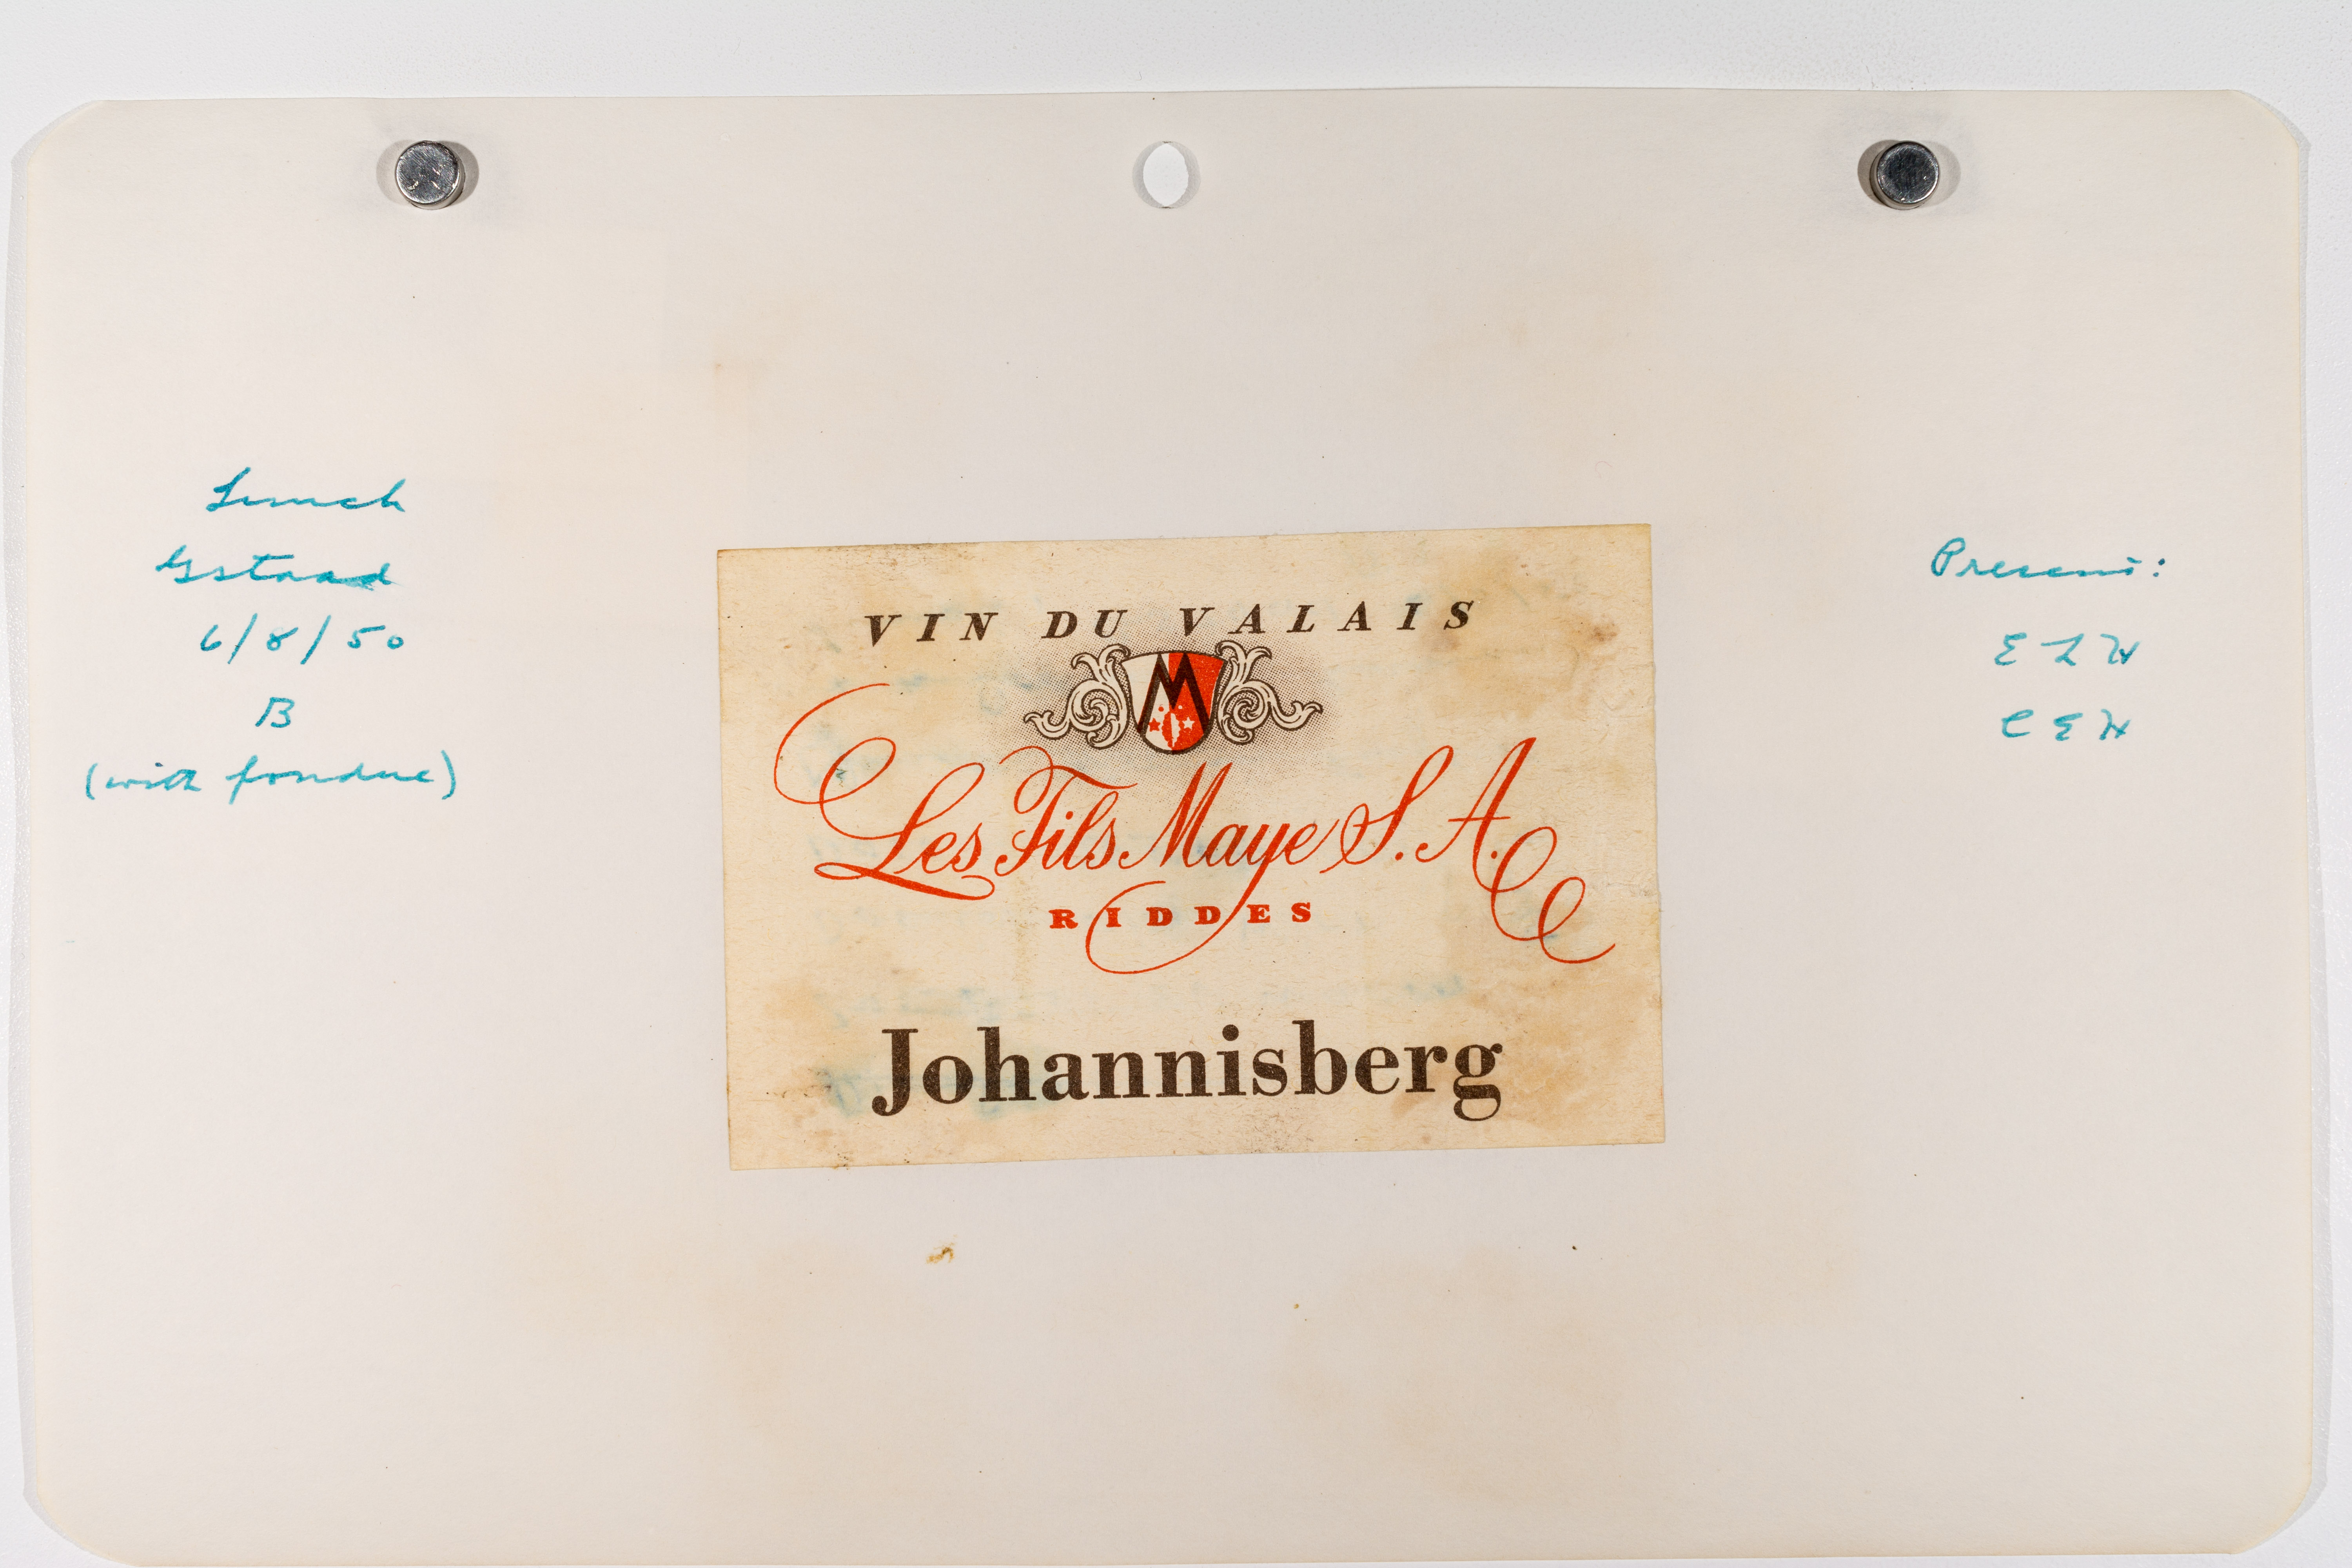 Lunch
Gstaad
6/8/50
B
(with fondue)
VIN DU VALAIS
M
Les Fils Maye S.A.
RIDDES
Johannisberg
Present:
ELH
CEH